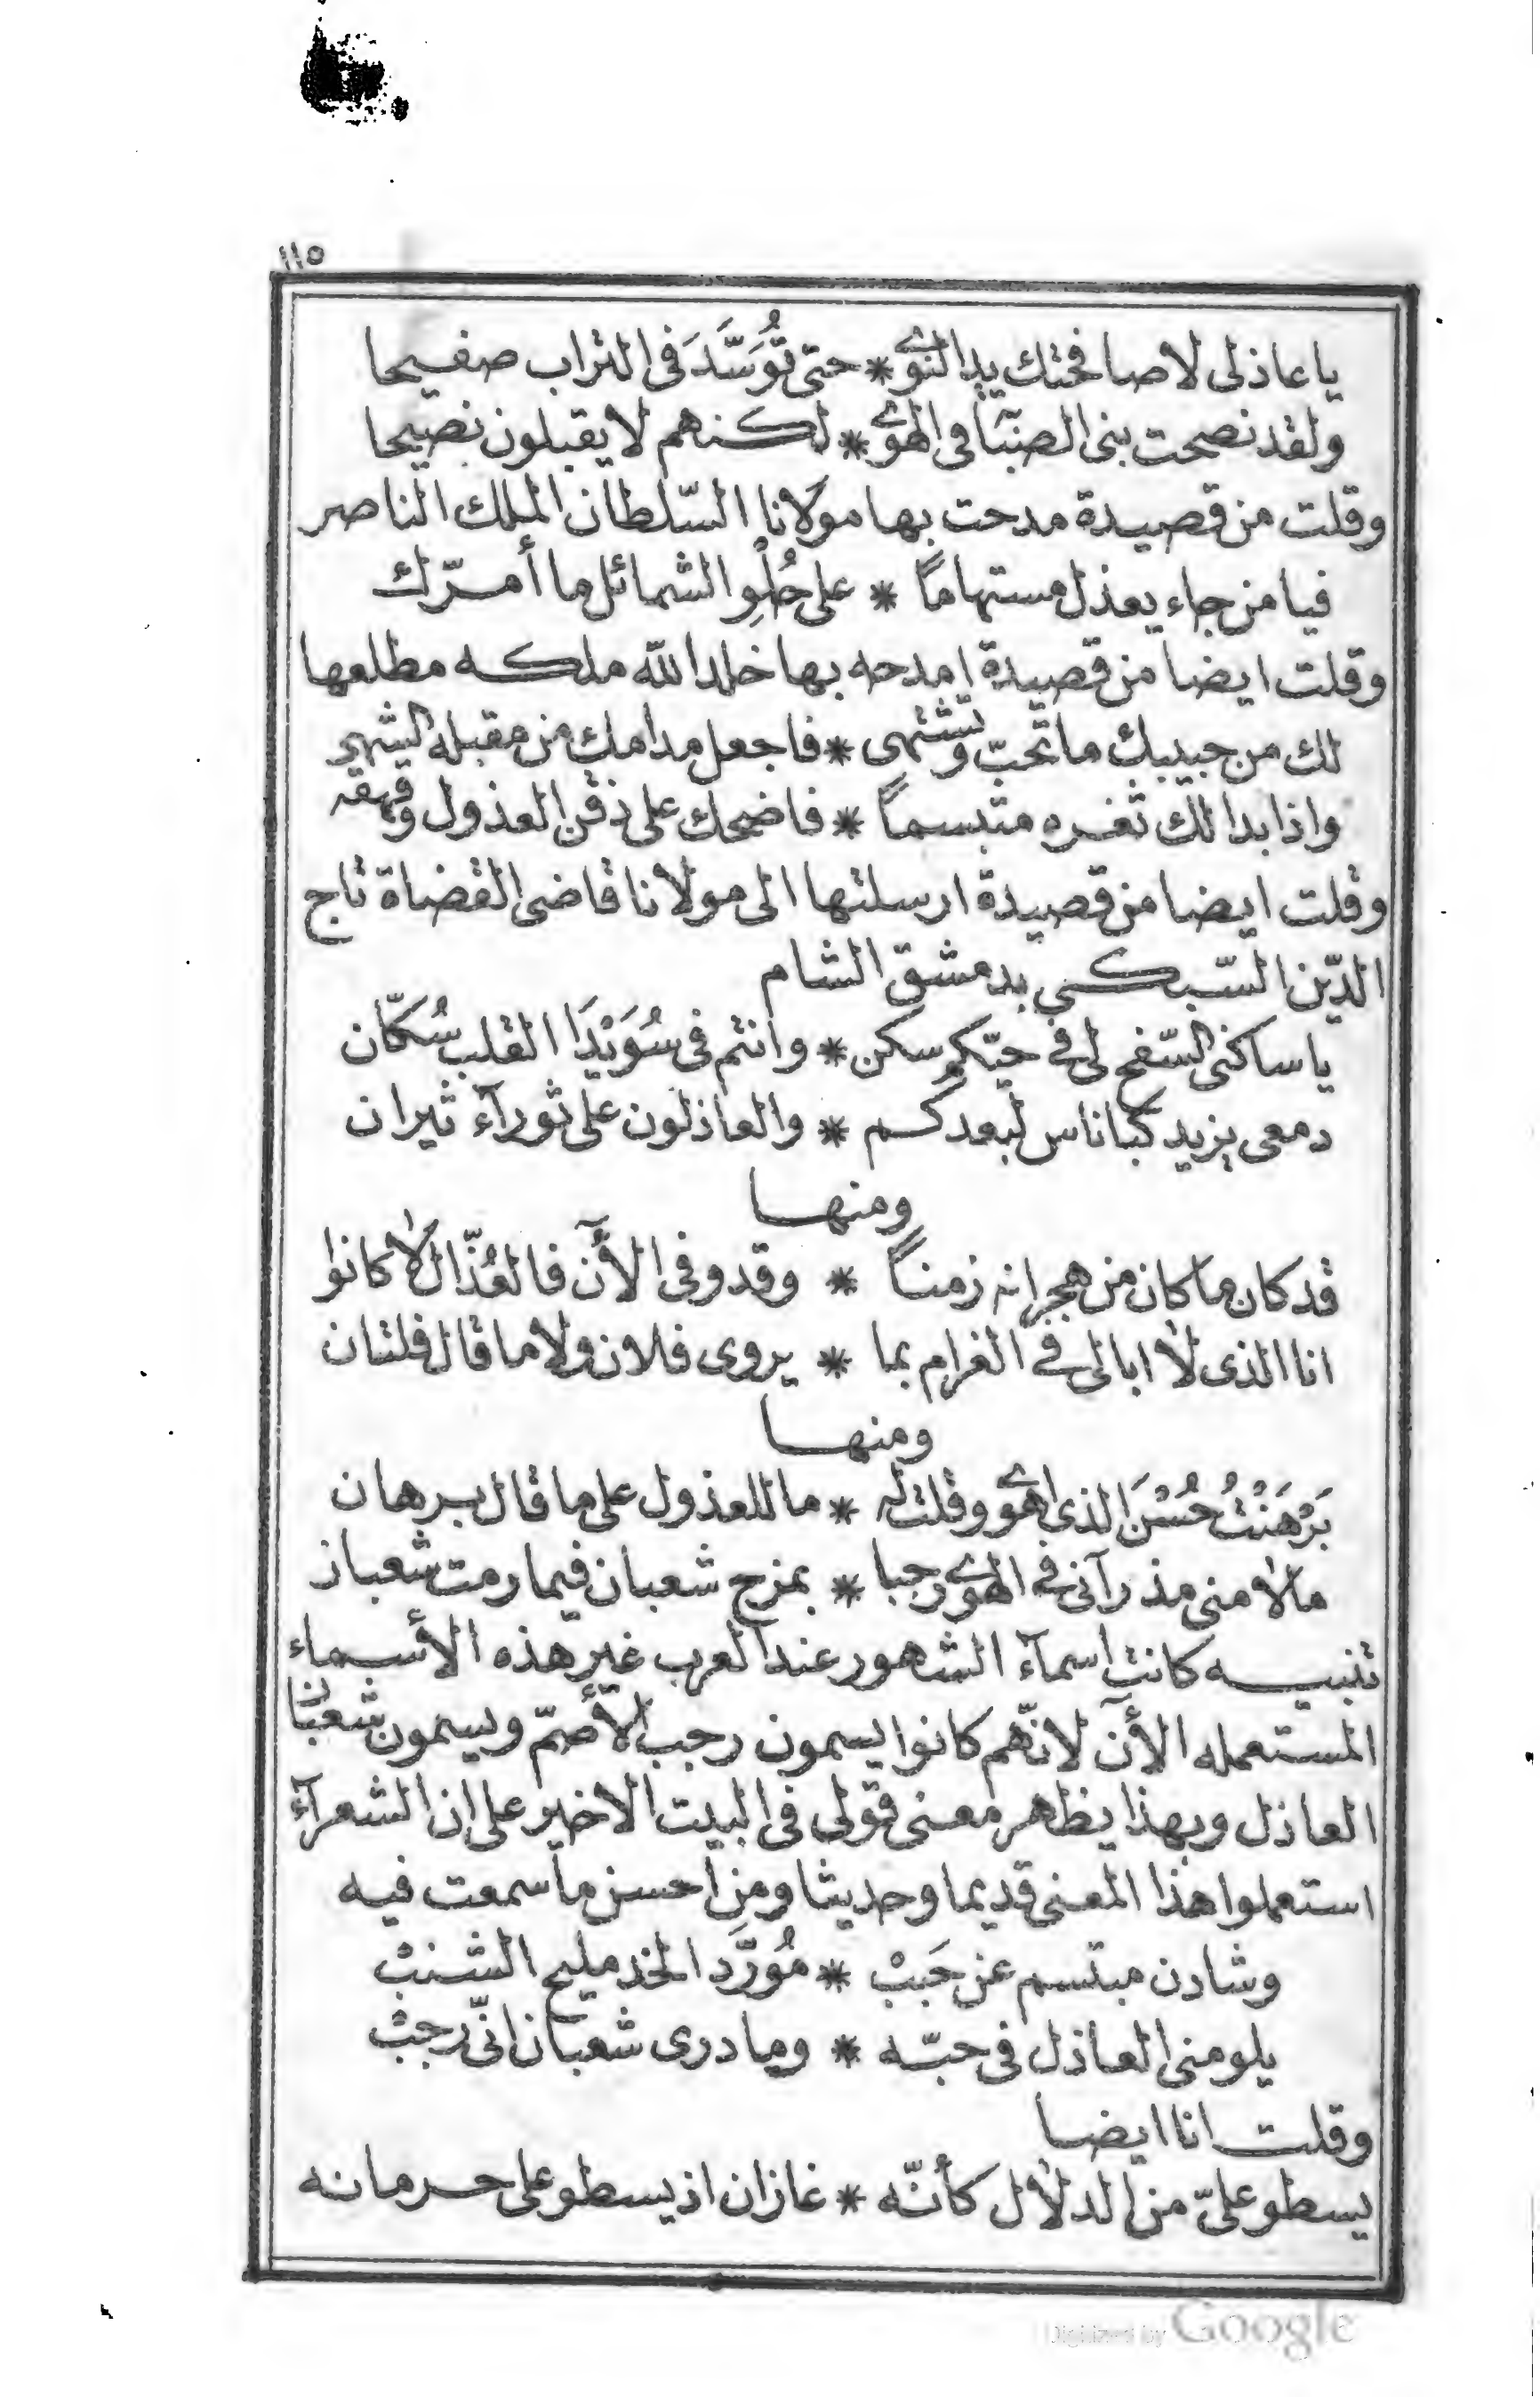 ١١٥
يا عاذلى لا صافحتك يد النوى * حتى تُوَسَّدَ فى التراب صفيحا
ولقد نصحت بنى الصبَا فى الهوى * لكنهم لا يقبلون نصيحا
وقلت من قصيدة مدحت بها مولانا السّلطان الملك الناصر
فيا من جاء يعذل مستهاماً * على حُلْوِ الشمائل ما أمرّك
وقلت ايضا من قصيدة امدحه بها خلد الله ملكه مطلعها
لك من حبيبك ما تحبّ وتشتهى * فاجعل مدامك من مقبله الشهى
واذا بدا لك ثغره متبسماً * فاضحك على ذقن العذول وقهقه
وقلت ايضا من قصيدة ارسلتها الى مولانا قاضى القضاة تاج
الدّين السّبكى بدمشق الشام
يا ساكنى السّفح لى فى حيّكم سكن * وانتم فى سُوَيْدَا القلب سُكّان
دمعى يزيد كباناس لبعدكم * والعاذلون على ثورآء ثيران
ومنها
قد كان ما كان من هجرانه زمناً * وقد وفى الأن فالعُذّال لا كانوا
انا الذى لا ابالى فى الغرام بما * يروى فلان ولا ما قال فلتان
ومنها
بَرْهَنْتُ حُسْنَ الذى اهوى وقلت له * ما للعذول على ما قال برهان
ما لامنى مذ رآنى فى الهوى رجبا * بمزج شعبان فيما رمت شعبان
تنبيه كانت اسمآء الشهور عند العرب غير هذه الأسماء
المستعمله الأن لانّهم كانوا يسمون رجب الأصمّ ويسمون شعبان
العاذل وبهذا يظهر معنى قولى فى البيت الاخير على ان الشعرآء
استعملوا هذا المعنى قديما وحديثا ومن احسن ما سمعت فيه
وشادن مبتسم عن حَبَبْ * مُورَّد الخد مليح الشنبْ
يلومنى العاذل فى حبّه * وما درى شعبان انّى رجبْ
وقلت انا ايضا
يسطو علىّ من الدلال كأنّه * غازان اذ يسطو على حرمانه
Digitized by Google